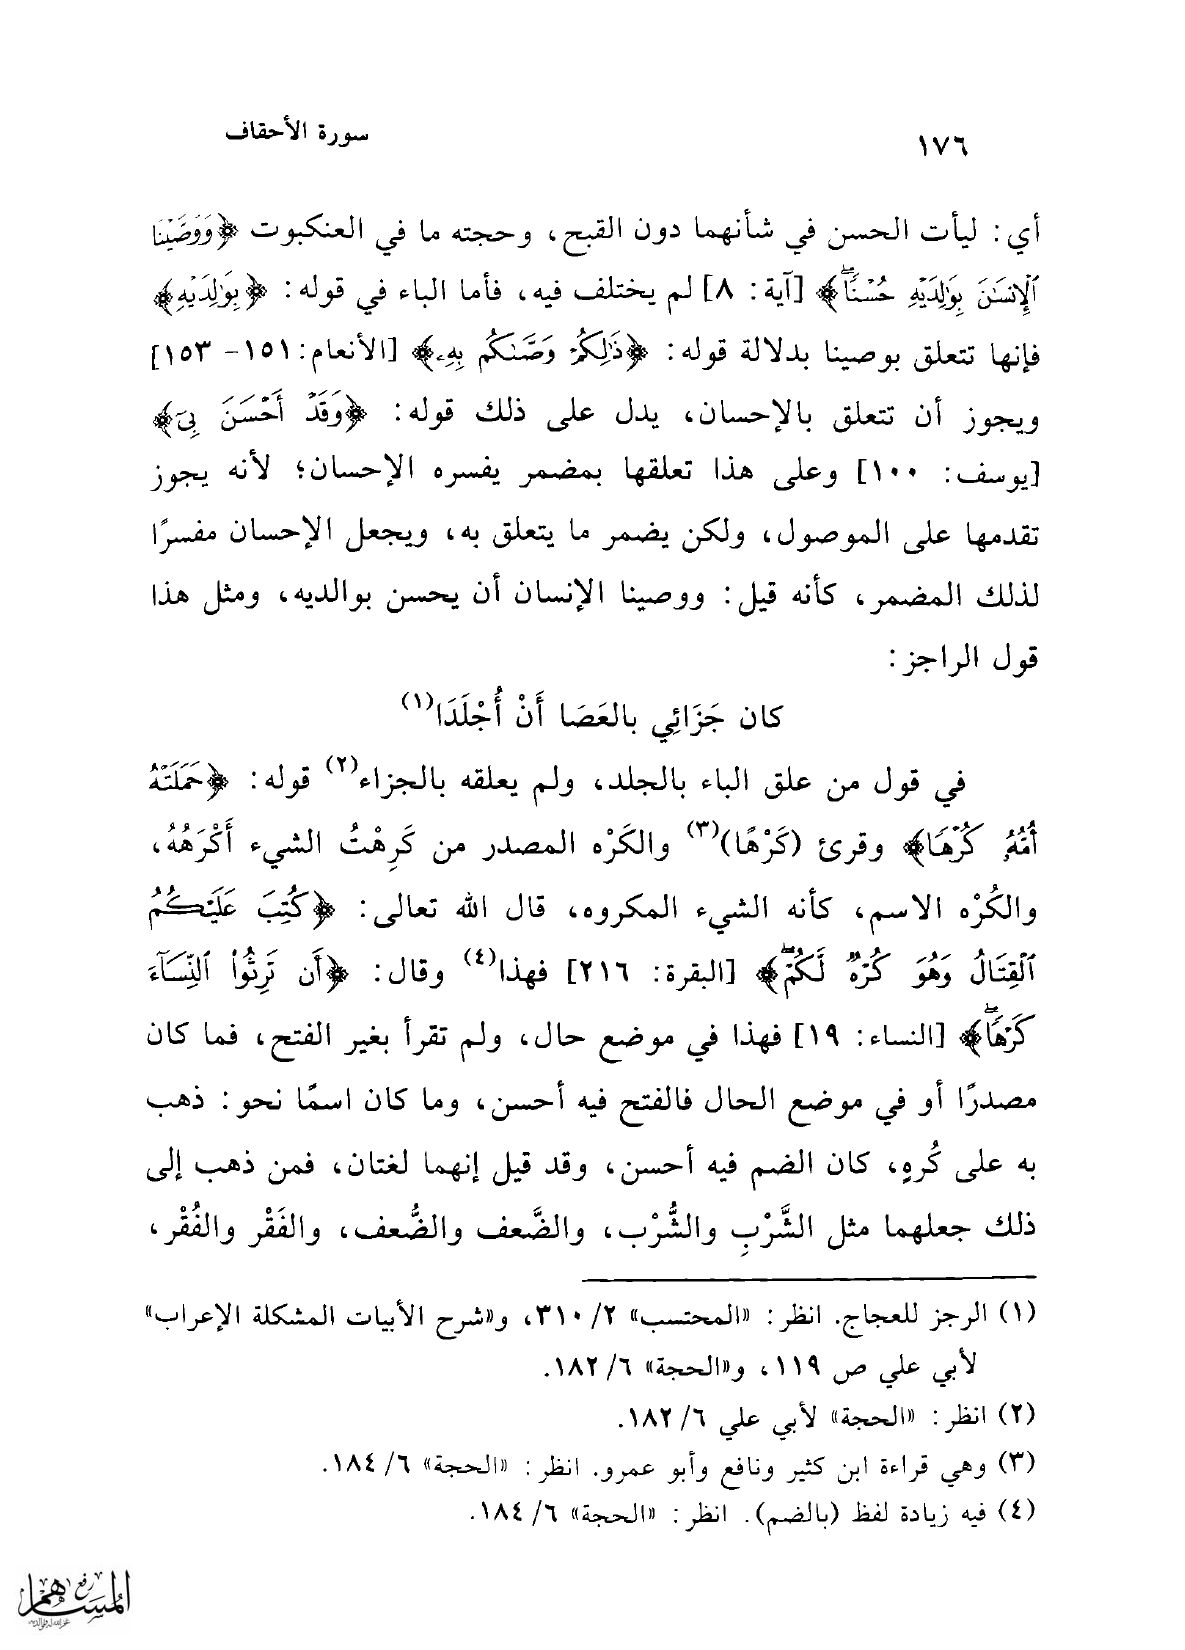 ١٧٦
سورة الأحقاف
أي: ليأت الحسن في شأنهما دون القبح، وحجته ما في العنكبوت ﴿وَوَصَّيْنَا
ٱلْإِنسَٰنَ بِوَٰلِدَيْهِ حُسْنًاۖ﴾ [آية: ٨] لم يختلف فيه، فأما الباء في قوله: ﴿بِوَٰلِدَيْهِ﴾
فإنها تتعلق بوصينا بدلالة قوله: ﴿ذَٰلِكُمْ وَصَّىٰكُم بِهِۦ﴾ [الأنعام: ١٥١- ١٥٣]
ويجوز أن تتعلق بالإحسان، يدل على ذلك قوله: ﴿وَقَدْ أَحْسَنَ بِىٓ﴾
[يوسف: ١٠٠] وعلى هذا تعلقها بمضمر يفسره الإحسان؛ لأنه يجوز
تقدمها على الموصول، ولكن يضمر ما يتعلق به، ويجعل الإحسان مفسرًا
لذلك المضمر، كأنه قيل: ووصينا الإنسان أن يحسن بوالديه، ومثل هذا
قول الراجز:
كان جَزَائِي بالعَصَا أَنْ أُجْلَدَا(١)
في قول من علق الباء بالجلد، ولم يعلقه بالجزاء(٢) قوله: ﴿حَمَلَتْهُ
أُمُّهُۥ كُرْهًا﴾ وقرئ (كَرْهًا)(٣) والكَرْه المصدر من كَرِهْتُ الشيء أَكْرَهُهُ،
والكُرْه الاسم، كأنه الشيء المكروه، قال الله تعالى: ﴿كُتِبَ عَلَيْكُمُ
ٱلْقِتَالُ وَهُوَ كُرْهٌ لَّكُمْۖ﴾ [البقرة: ٢١٦] فهذا(٤) وقال: ﴿أَن تَرِثُوا۟ ٱلنِّسَآءَ
كَرْهًاۖ﴾ [النساء: ١٩] فهذا في موضع حال، ولم تقرأ بغير الفتح، فما كان
مصدرًا أو في موضع الحال فالفتح فيه أحسن، وما كان اسمًا نحو: ذهب
به على كُرهٍ، كان الضم فيه أحسن، وقد قيل إنهما لغتان، فمن ذهب إلى
ذلك جعلهما مثل الشَّرْبِ والشُّرْب، والضَّعف والضُّعف، والفَقْر والفُقْر،
(١) الرجز للعجاج. انظر: «المحتسب» ٢/ ٣١٠، و«شرح الأبيات المشكلة الإعراب»
لأبي علي ص ١١٩، و«الحجة» ٦/ ١٨٢.
(٢) انظر: «الحجة» لأبي علي ٦/ ١٨٢.
(٣) وهي قراءة ابن كثير ونافع وأبو عمرو. انظر: «الحجة» ٦/ ١٨٤.
(٤) فيه زيادة لفظ (بالضم). انظر: «الحجة» ٦/ ١٨٤.
رفع
المساهم